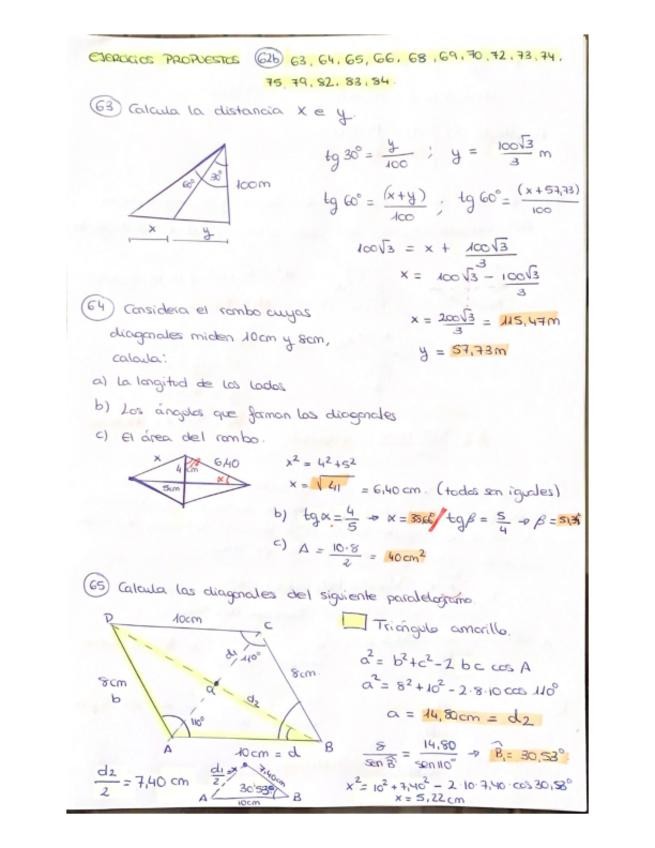 EJERCICIOS PROPUESTOS 62b 63, 64, 65, 66, 68, 69, 70, 72, 73, 74,
75, 79, 82, 83, 84.
63 Calcula la distancia x e y.
60° 30° 100m
x y
tg 30° = y/100 ; y = 100√3/3 m
tg 60° = (x+y)/100 ; tg 60° = (x+57,73)/100
100√3 = x + 100√3/3
x = 100√3 - 100√3/3
x = 200√3/3 = 115,47m
y = 57,73m
64 Considera el rombo cuyas
diagonales miden 10cm y 8cm,
calcula:
a) La longitud de los lados
b) Los ángulos que forman las diagonales
c) El área del rombo.
x 6,40
4 cm
5cm α
x² = 4²+5²
x = √41 = 6,40 cm. (todos son iguales)
b) tg α = 4/5 → α = / tg β = 5/4 → β =
c) A = 10·8/2 = 40cm²
65 Calcula las diagonales del siguiente paralelogramo.
D 10cm C
d1 110°
8cm b
8cm
a d2
110°
A B
10cm = d
Triángulo amarillo.
a² = b²+c²-2 b c cos A
a² = 8²+10²-2·8·10 cos 110°
a = 14,80cm = d2
8/sen B = 14,80/sen 110° → B₁ = 30,53°
d2/2 = 7,40 cm
d1/2 = x 7,40cm
30'53°
A 10cm B
x² = 10²+7,40²-2·10·7,40·cos 30,58°
x = 5,22cm